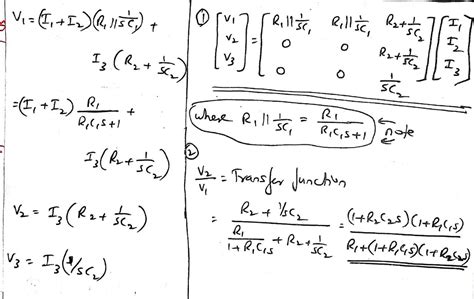 V₁ = (I₁ + I₂)(R₁ || 1/SC₁) +
I₃ (R₂ + 1/SC₂)
= (I₁ + I₂) R₁/(R₁C₁S+1) +
I₃(R₂ + 1/SC₂)
V₂ = I₃(R₂ + 1/SC₂)
V₃ = I₃(1/SC₂)
① [V₁ V₂ V₃] = [R₁ || 1/SC₁ R₁ || 1/SC₁ R₂ + 1/SC₂; 0 0 R₂ + 1/SC₂; 0 0 1/SC₂] [I₁ I₂ I₃]
where R₁ || 1/SC₁ = R₁/(R₁C₁S+1) note
②
V₂/V₁ = Transfer function
= (R₂ + 1/SC₂)/(R₁/(1+R₁C₁S) + R₂ + 1/SC₂) = (1+R₂C₂S)(1+R₁C₁S)/(R₁+(1+R₁C₁S)(1+R₂C₂S))